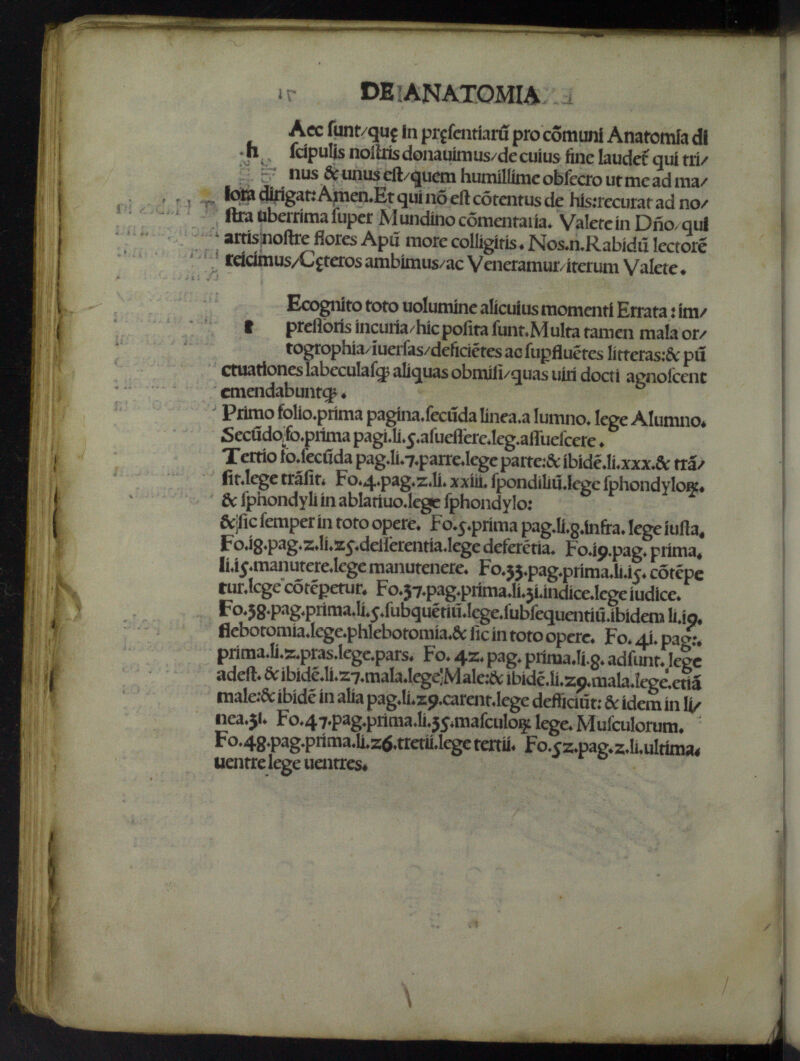 DE ANATOMIA
Aec ſunt/quę in pręſentiarũ pro cõmuni Anatomia di
h ſcipulis noſtris donauimus/de cuius fine laudet̃ qui tri/
nus & unus eſt/quem humillime obſecro ut me ad ma/
iora dirigat: Amen.Et qui nõ eſt cõtentus de his:recurat ad no/
ſtra uberrima ſuper Mundino cõmentaria. Valete in Dño/qui
artis noſtre flores Apũ more colligitis. Nos.n.Rabidũ lectorẽ
reicimus/Cęteros ambimus/ac Veneramur/iterum Valete.
Ecognito toto uolumine alicuius momenti Errata : im/
r preſſoris incuria/hic poſita ſunt.Multa tamen mala or/
togrophia/iuerſas/deficiẽtes ac ſupfluẽtes litteras:& pũ
ctuationes labeculaſqꝫ aliquas obmiſi/quas uiri docti agnoſcent
emendabuntqꝫ.
Primo folio.prima pagina.ſecũda linea.a lumno. lege Alumno.
Secũdo fo.prima pagi.li.5.aſueſſere.leg.aſſueſcere.
Tertio fo.ſecũda pag.li.7.parre.lege parte:& ibidẽ.li.xxx.& trã/
ſit.lege trãſit. Fo.4.pag.2.li.xxiii. ſpondiliũ.lege ſphondyloꝝ.
& ſphondyli in ablatiuo.lege ſphondylo:
& ſic ſemper in toto opere. Fo.5.prima pag.li.8.infra. lege iuſta.
Fo.18.pag.2.li.25.deſſerentia.lege deferẽtia. Fo.19.pag. prima.
li.15.manutere.lege manutenere. Fo.33.pag.prima.li.15. cõtẽpe
tur.lege cõtẽpetur. Fo.37.pag.prima.li.31.indice.lege iudice.
Fo.38.pag.prima.li.5.ſubquẽtiũ.lege.ſubſequentiũ.ibidem li.19.
flebotomia.lege.phlebotomia.& ſic in toto opere. Fo. 41. pag:.
prima.li.2.pras.lege.pars. Fo. 42. pag. prima.li.8. adſunt. lege
adeſt. & ibidẽ.li.27.mala.lege Male:& ibidẽ.li.29.mala.lege.etiã
male:& ibidẽ in alia pag.li.29.carent.lege defficiũt: & idem in li/
nea.31. Fo.47.pag.prima.li.35.maſculoꝝ lege. Muſculorum.
Fo.48.pag.prima.li.26.tretii.lege tertii. Fo.52.pag.2.li.ultima.
uentre lege uentres.